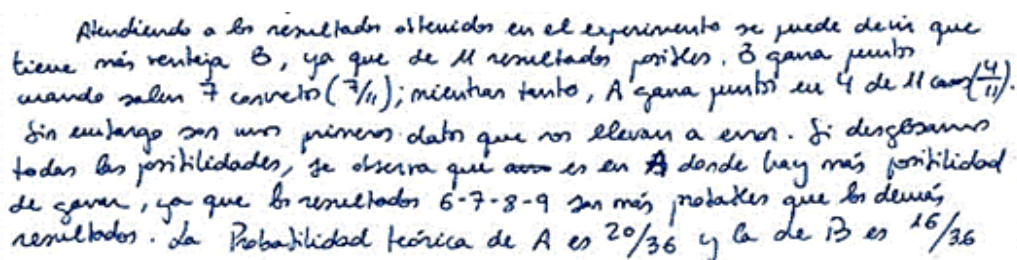 Atendiendo a los resultados obtenidos en el experimento se puede decir que
tiene más ventaja B, ya que de 11 resultados posibles. B gana puntos
cuando salen 7 concretos (7/11); mientras tanto, A gana puntos en 4 de 11 casos (4/11).
Sin embargo son unos primeros datos que nos llevan a error. Si desglosamos
todas las posibilidades, se observa que es en A donde hay más posibilidad
de ganar, ya que los resultados 6-7-8-9 son más probables que los demás
resultados. La Probabilidad teórica de A es 20/36 y la de B es 16/36